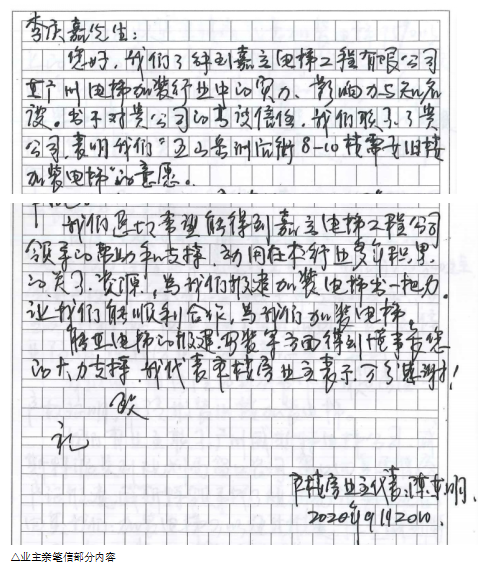 李庆嘉先生：
您好，我们了解到嘉立电梯工程有限公司
在广州电梯加装行业中的实力、影响力与知名
度。出于对贵公司的高度信任，我们联系了贵
公司，表明我们“五山岳洲宿街8-10楼需要旧楼
加装电梯”的意愿。
我们迫切希望能得到嘉立电梯工程公司
领导的帮助和支持，动用在本行业多年积累
的关系、资源，为我们报建加装电梯出一把力。
让我们能顺利合作，为我们加装电梯。
能在电梯的报建、安装等方面得到董事长您
的大力支持，我代表本楼房业主表示万分感谢！
致
礼
本楼房业主代表：陈
2020年9月20日
△业主亲笔信部分内容